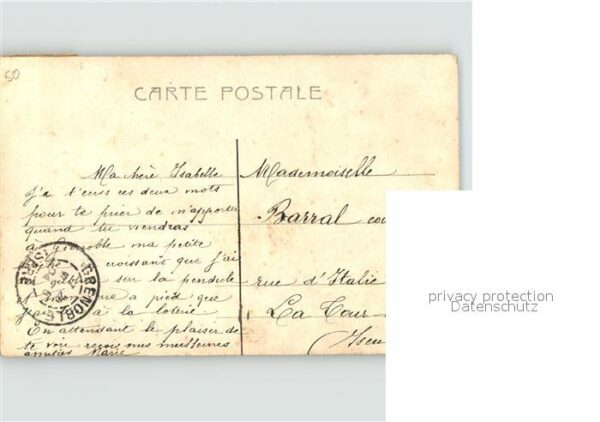 50
CARTE POSTALE
Ma chère Isabelle
J'ai t'ecris ces deux mots
pour te prier de m'apporter
quand tu viendras
à Grenoble ma petite
croissant que j'ai
sur la pendule
a pied que
a la loterie.
En attendant le plaisir de
te voir reçois mes meilleures
amitiés Marie
GRENOBLE
ISERE
Mademoiselle
Barral
rue d'Italie
La Tour
Isere
privacy protection
Datenschutz